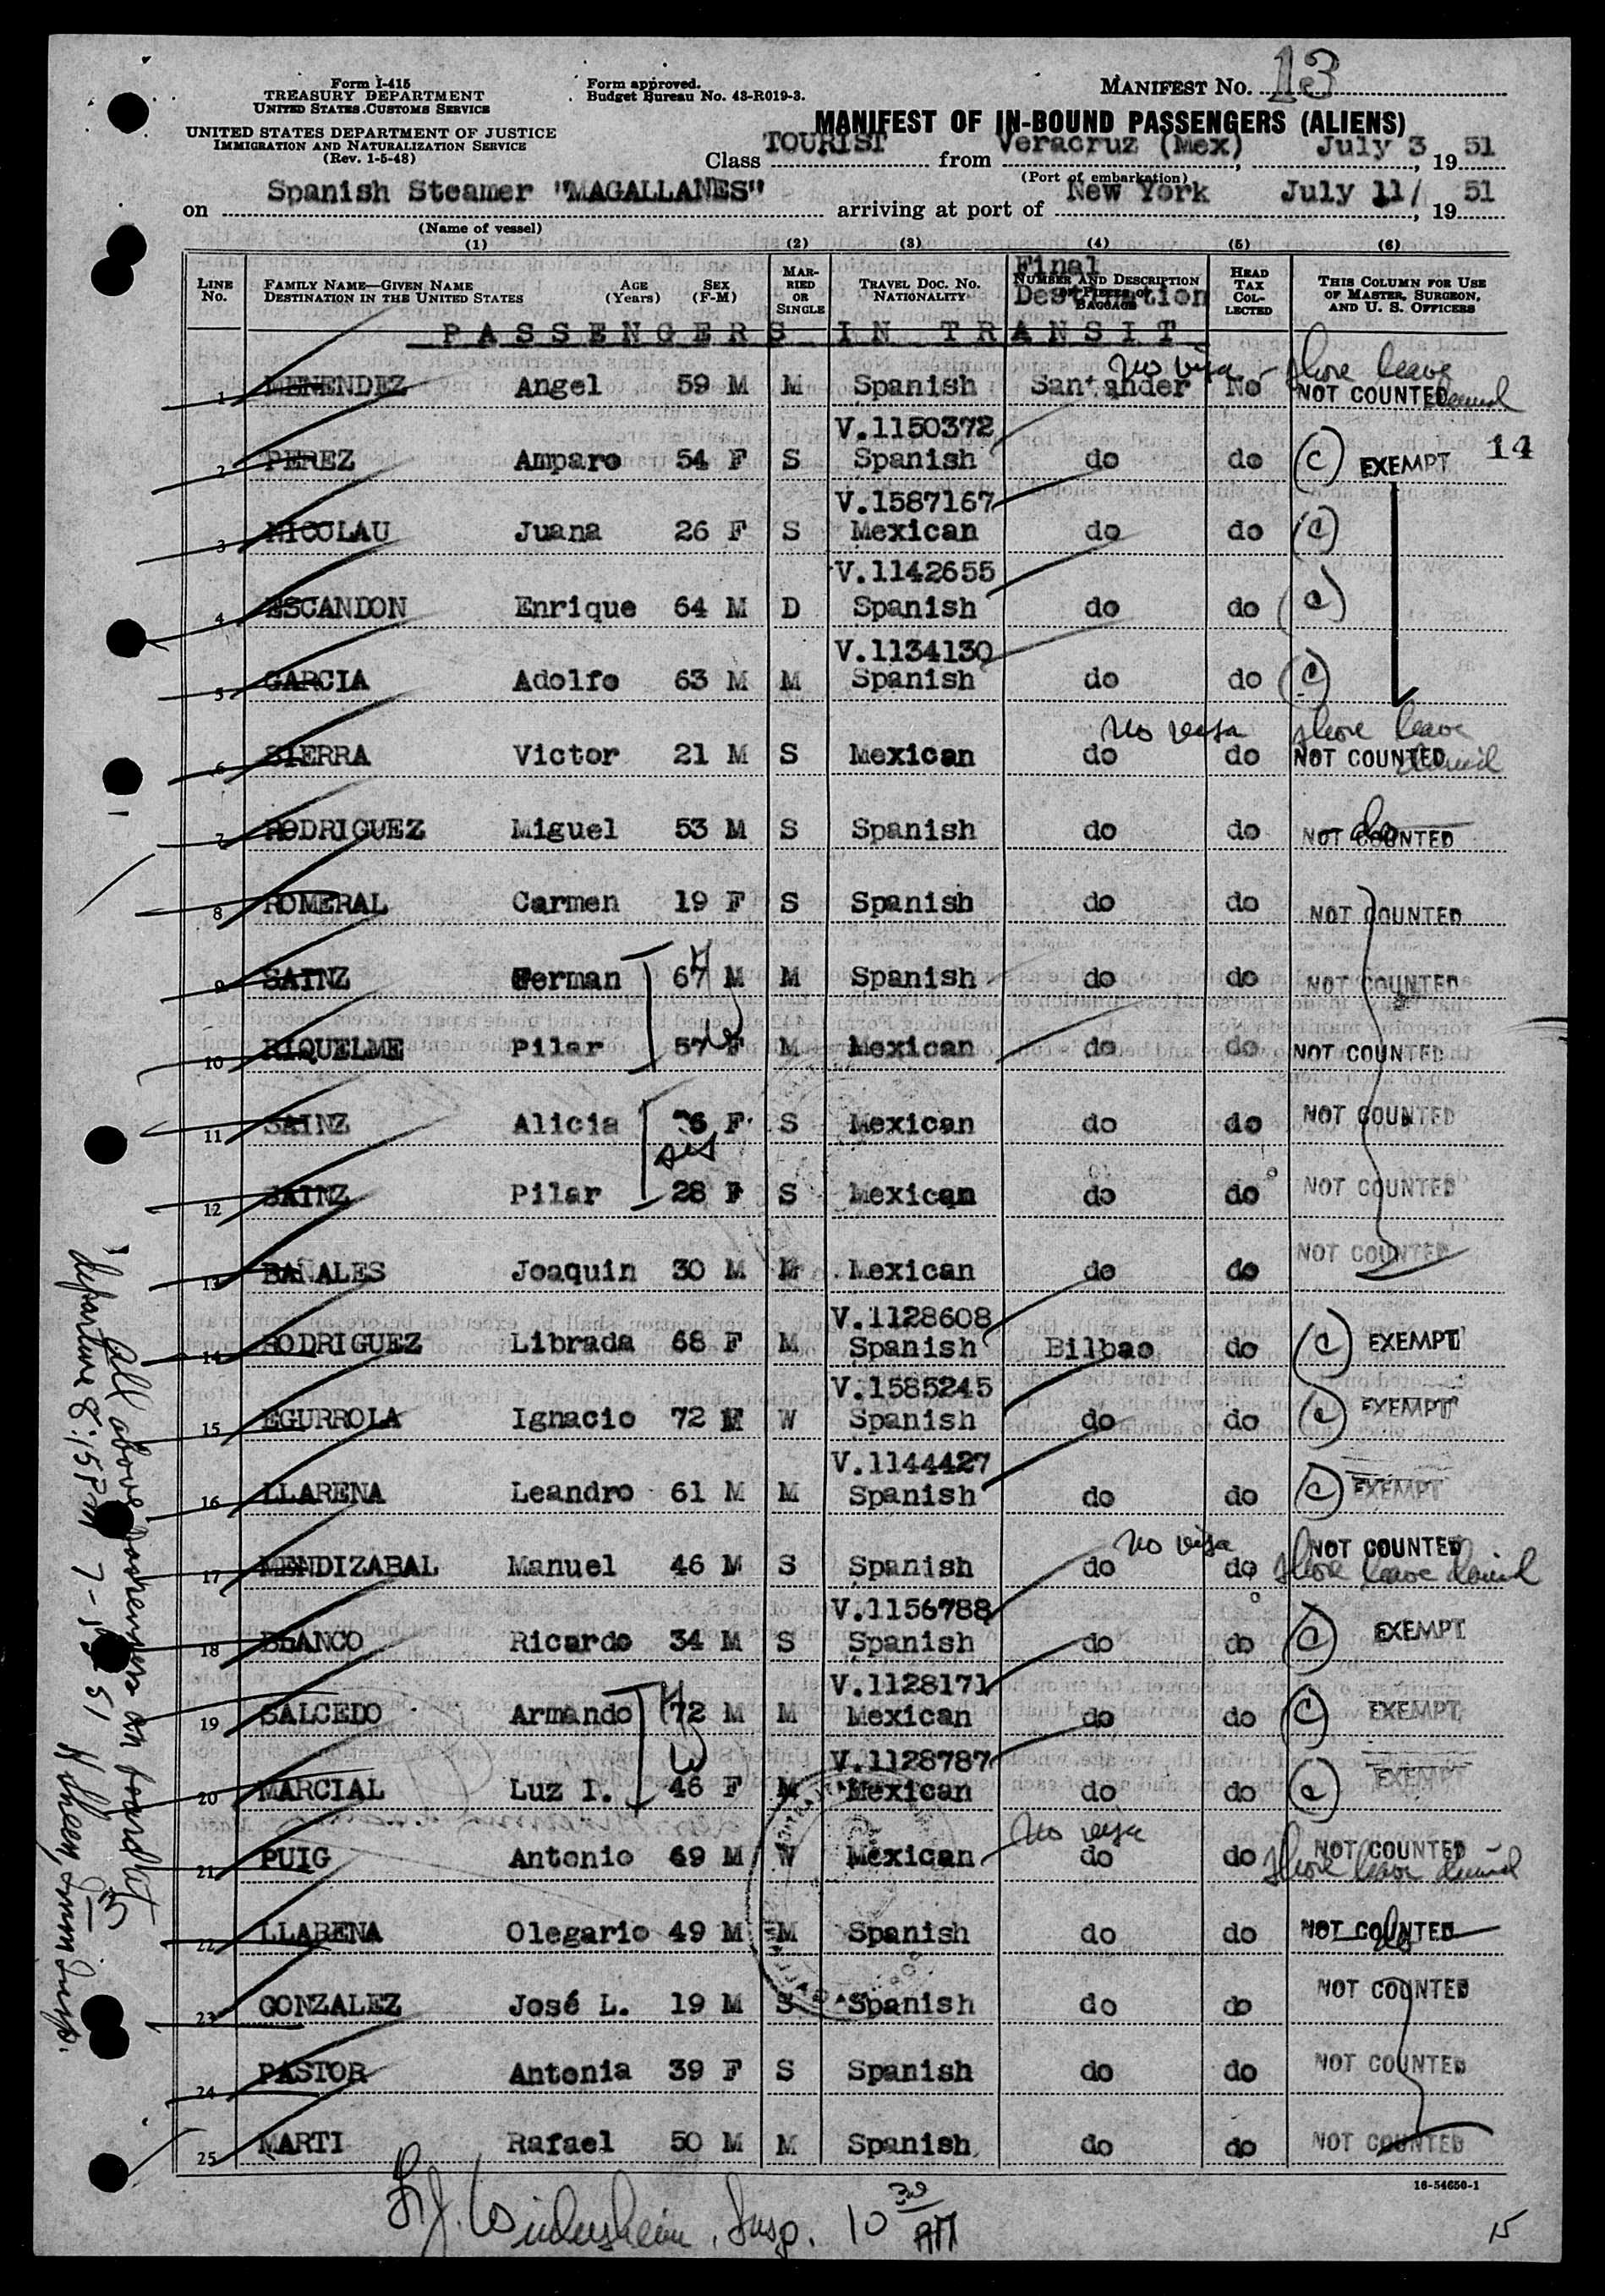 Form I-415
TREASURY DEPARTMENT
UNITED STATES CUSTOMS SERVICE
UNITED STATES DEPARTMENT OF JUSTICE
IMMIGRATION AND NATURALIZATION SERVICE
(Rev. 1-5-48)
Form approved.
Budget Bureau No. 43-R019-3.
MANIFEST No. 13
MANIFEST OF IN-BOUND PASSENGERS (ALIENS)
Class TOURIST from Veracruz (Mex), July 3, 1951
(Port of embarkation)
on Spanish Steamer "MAGALLANES" arriving at port of New York July 11/, 1951
(Name of vessel)
(1) (2) (3) (4) (5) (6)
LINE No. FAMILY NAME—GIVEN NAME DESTINATION IN THE UNITED STATES AGE (Years) SEX (F-M) MARRIED OR SINGLE TRAVEL DOC. NO. NATIONALITY NUMBER AND DESCRIPTION OF PIECES OF BAGGAGE Final Destination HEAD TAX COLLECTED THIS COLUMN FOR USE OF MASTER, SURGEON, AND U. S. OFFICERS
PASSENGERS IN TRANSIT
1 MENENDEZ Angel 59 M M Spanish Santander No visa No shore leave denied NOT COUNTED
14
2 PEREZ Amparo 54 F S V.1150372 Spanish do do (C) EXEMPT
3 NICOLAU Juana 26 F S V.1587167 Mexican do do (C)
4 ESCANDON Enrique 64 M D V.1142655 Spanish do do (C)
5 GARCIA Adolfo 63 M M V.1134130 Spanish do do (C)
6 SIERRA Victor 21 M S Mexican do No visa do shore leave denied NOT COUNTED
7 RODRIGUEZ Miguel 53 M S Spanish do do NOT COUNTED do
8 ROMERAL Carmen 19 F S Spanish do do NOT COUNTED
9 SAINZ German 67 M M Spanish do do NOT COUNTED
H
W
10 RIQUELME Pilar 57 F M Mexican do do NOT COUNTED
11 SAINZ Alicia F S Mexican do do NOT COUNTED
sis
12 SAINZ Pilar 28 F S Mexican do do NOT COUNTED
13 BAÑALES Joaquin 30 M M Mexican do do NOT COUNTED
14 RODRIGUEZ Librada 68 F M V.1128608 Spanish Bilbao do (C) EXEMPT
15 EGURROLA Ignacio 72 M W V.1585245 Spanish do do (C) EXEMPT
16 LLARENA Leandro 61 M M V.1144427 Spanish do do (C) EXEMPT
17 MENDIZABAL Manuel 46 M S Spanish do No visa do NOT COUNTED shore leave denied
18 BLANCO Ricardo 34 M S V.1156788 Spanish do do (C) EXEMPT
19 SALCEDO Armando 72 M M V.1128171 Mexican do do (C) EXEMPT
H
W
20 MARCIAL Luz I. 46 F M V.1128787 Mexican do do (C) EXEMPT
21 PUIG Antonio 69 M W Mexican No visa do do NOT COUNTED shore leave denied
22 LLARENA Olegario 49 M M Spanish do do NOT COUNTED do
23 GONZALEZ José L. 19 M S Spanish do do NOT COUNTED
24 PASTOR Antonia 39 F S Spanish do do NOT COUNTED
25 MARTI Rafael 50 M M Spanish do do NOT COUNTED
16-54650-1
Insp. 10 30 AM
15
All above passengers on board at
departure 8:15 PM 51